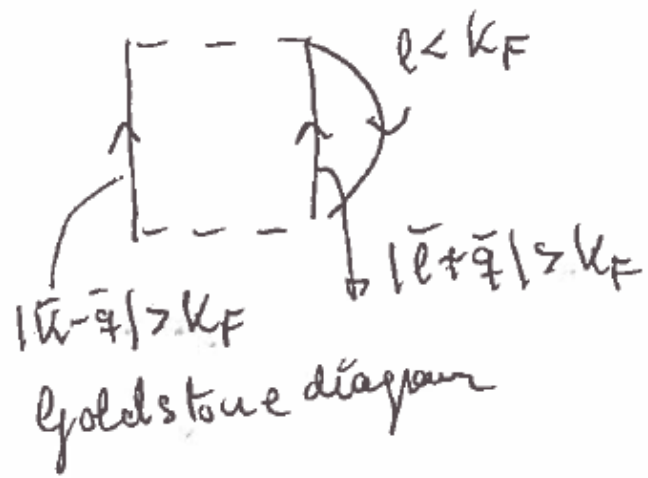 l < K_F
|l̄+q̄| > K_F
|k̄-q̄| > K_F
Goldstone diagram